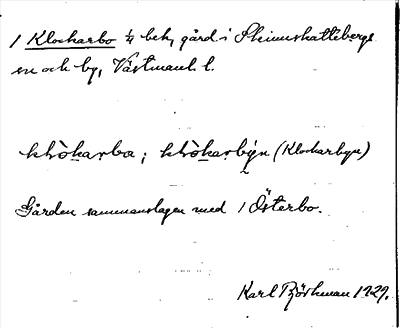 1 Klockarbo ¼ bek. gård i Skinnskattebergs
sn och by, Västmanl. l.
klòkarba; klòkarbýn (Klockarbyn)
Gården sammanslagen med 1 Österbo.
Karl Björkman 1929.